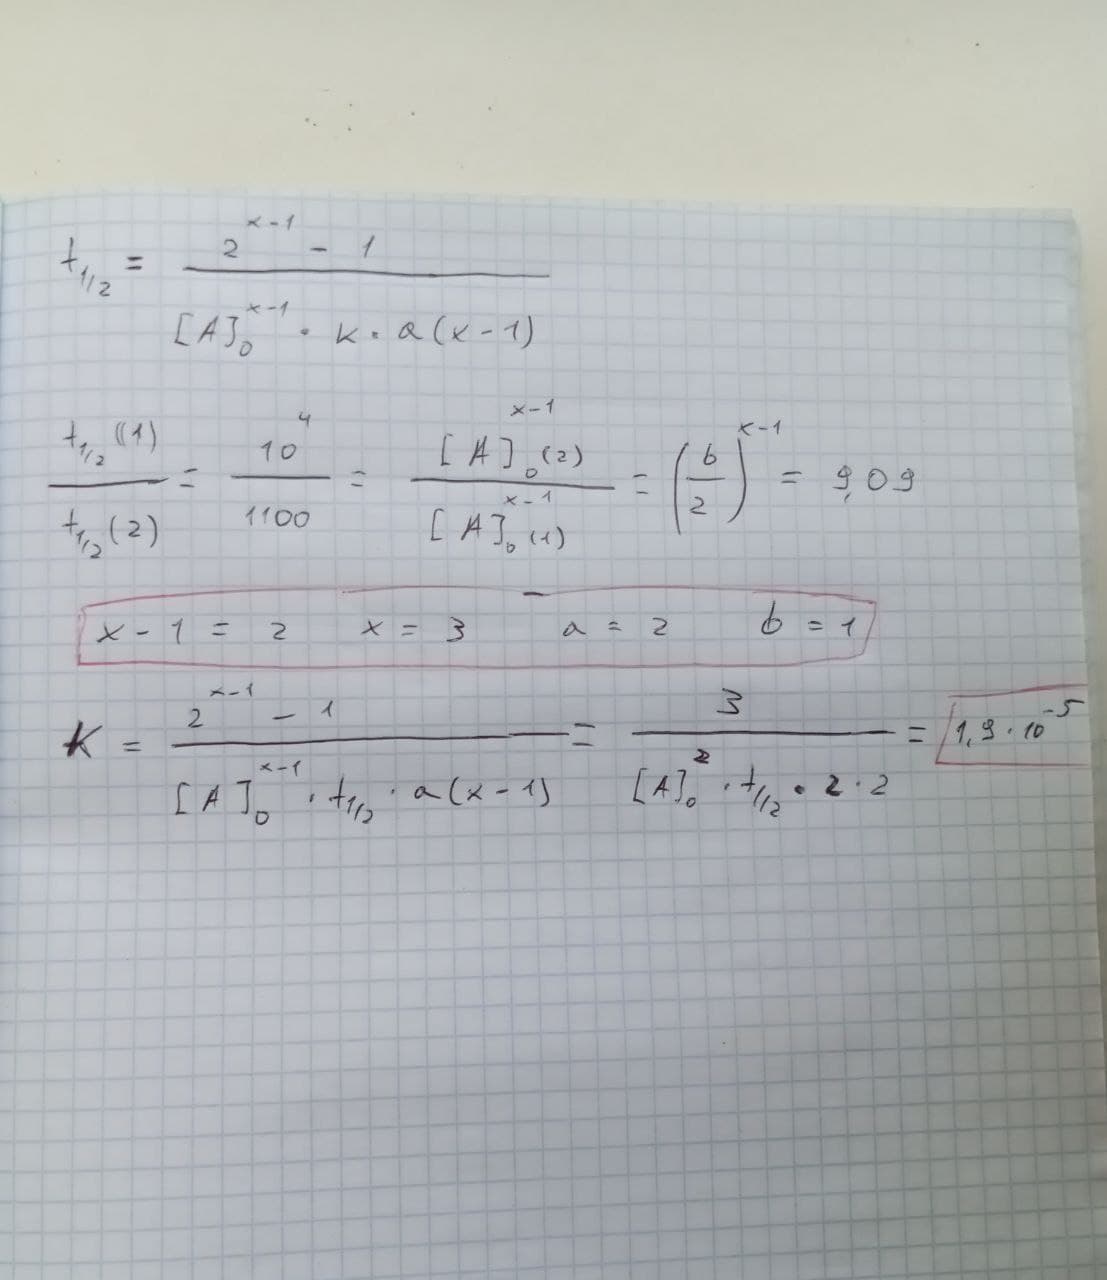 t1/2 = (2^(x-1) - 1) / ([A]0^(x-1) · k · a(x-1))
t1/2 ((1) / t1/2 (2) = 10^4 / 1100 = [A]0^(x-1) (2) / [A]0^(x-1) (1) = (6/2)^(x-1) = 9,09
x - 1 = 2 x = 3 a = 2 b = 1
K = (2^(x-1) - 1) / ([A]0^(x-1) · t1/2 · a(x-1)) = 3 / ([A]0^2 · t1/2 · 2 · 2) = 1,9 · 10^-5